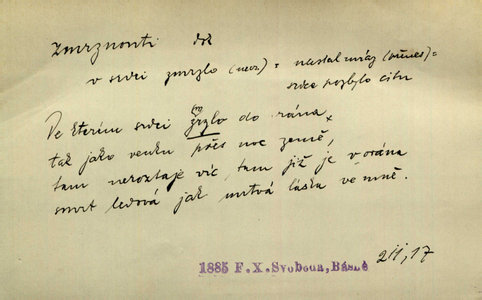 zmrznouti dok
v srdci zmrzlo (neos.) = nastal mráz (přenes.) =
srdce pozbylo citu
Ve kterém srdci zm
mrzlo do rána,
tak jako venku přes noc země,
tam neroztaje víc tam již je vorána
smrt ledová jak mrtvá láska ve mně.
1885 F.X.Svoboda, Básně
211, 17